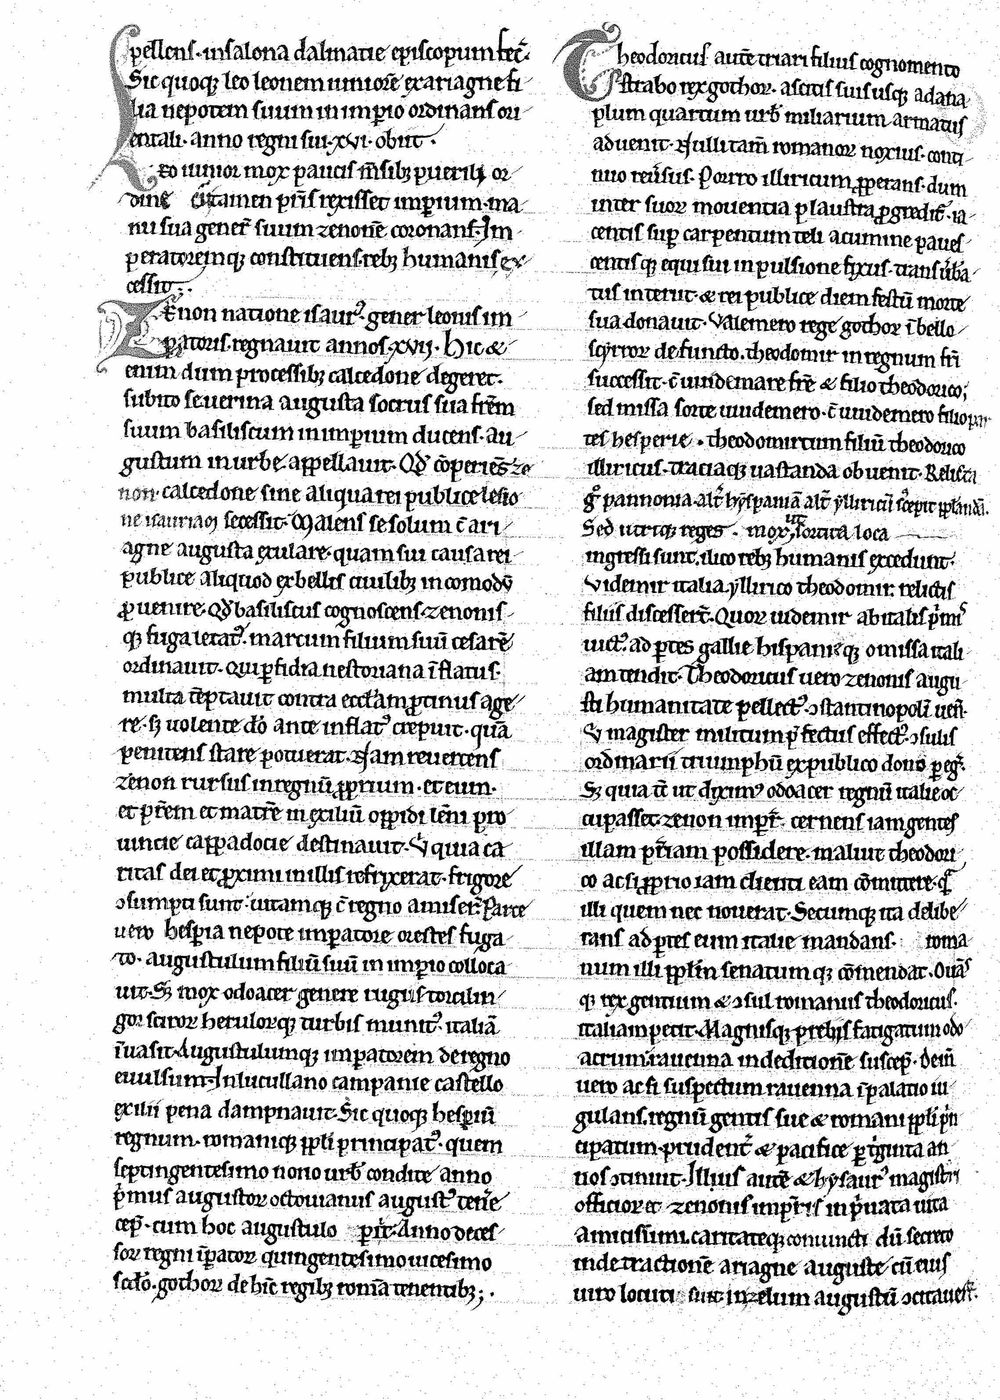 pellens· in salona dalmatie episcopum fec̄·
Sic quoq; leo leonem iuniorē ex ariagne fi
lia nepotem suum in imp̄io ordinans ori
entali· anno regni sui·xvi· obiit ·
Leo iunior mox paucis m̄sib; puerili or
dine cū tamen p̄ris rexisset imp̄ium· ma
nu sua gener̄ suum zenonē coronans· Im
peratoremq; constituens· reb; humanis ex
cessit;·
Zenon natione isaur᾽· gener leonis im
p̱atoris· regnauit annos·xvij· Hic &
enim dum processib; calcedone degeret·
subito seuerina augusta socrus sua frēm
suum basiliscum in imp̱ium ducens· au
gustum in urbe appellauit· Qđ cōperiēs ze
non· calcedone sine aliqua rei publice lesio
ne isauriam secessit· Malens se solum c̄ ari
agne augusta exulare· quam sui causa rei
publice aliquod ex bellis ciuilib; incomodū
ꝓuenire· Qđ basiliscus cognoscens· zenonis
q; fuga letat᾽· marcum filium suū cesarē
ordinauit· Qui p̱fidia nestoriana īflatus·
multa tēptauit contra eccl̄am ꝓtinus age
re· sꝫ volente dō ante inflat᾽ crepuit· quā
penitens stare potuerat· Nam reuertens
zenon rursus in regnū ꝓprium· et eum·
et p̄rem et matrē in exiliū oppidi lēni pro
uincie cappadocie destinauit· Et quia ca
ritas dei et ꝓximi in illis refrixerat· frigore
ↄsumpti sunt· uitamq; c̄ regno amiser̄· Parte
uero hesp̱ia nepote imp̱atore orestes fuga
to· augustulum filiū suū in imp̱io colloca
uit· Sꝫ mox odoacer genere rugus torcilin
goꝝ sciroꝝ heruloꝝq; turbis munit᾽· italiā
īuasit· Augustulumq; imp̱atorem de regno
euulsum· In lucullano campanie castello
exilii pena dampnauit· Sic quoq; hesp̱iū
regnum· romaniq; pp̄li principat᾽· quem
septingentesimo nono urb̄ condite anno
p̄mus augustoꝝ octouianus august᾽ tenē
cep̱· cum hoc augustulo p̱iit· Anno deces
soꝝ regni īp̱atoꝝ quingentesimo uicesimo
scđo· gothoꝝ dehīc regib; romā tenentib;;·
Theodoricus autē triari filius cognomento
Strabo rex gothoꝝ· ascitis suis usq; ad ana
plum quartum urb̄ miliarium armatus
aduenit· Nulli tam̄ romanoꝝ noxius· conti
nuo reūsus· Porro illiricum ꝓperans· dum
inter suoꝝ mouentia plaustra ꝓgredit̄· ia
centis sup̱ carpentum teli acumine paues
centisq; equi sui inpulsione fixus· transūba
tus interiit· & rei publice diem festū morte
sua donauit· Valemero rege gothoꝝ ī bello
scyrroꝝ defuncto· theodomir in regnum frī
successit· c̄ uuidemare frē & filio theodorico;
sed missa sorte uuidemero· c̄ uuidemero filio par
tes hesperie · theodomirtum filiū theodorico
illiricus· traciaq; uastanda obuenit· Relicta
gͦ pannonia· alt̄ hyspaniā alt̄ ylliricū s̄cepit pp̄landā.
Sed utriq; reges · mox ut sortita loca
ingressi sunt· ilico reb; humanis excedunt·
Videmir italia· yllirico theodomir· relictis
filiis discesser̄t· Quoꝝ uidemir ab italis p̄mi᾽
uict᾽· ad p̱tes gallie hispanieq; omissa itali
am tendit· Theodoricus uero zenonis augu
sti humanitate pellect᾽· ↄstantinopolī ueñ·
Et magister militum p̄fectus effect᾽· ↄsulis
ordinarii triumphū ex publico dono p̱eg̱·
Sꝫ quia tc̄ ut diximꝰ odoacer regnū italie oc
cupasset· zenon imp̱r̄· cernens iam gentes
illam p̄riam possidere· maluit theodori
co ac si ꝓprio iam clienti eam cōmittere· qͣ
illi quem nec nouerat· Secumq; ita delibe
rans ad p̱tes eum italie mandans· roma
num illi pp̄lm̄ senatumq; cōmendat· Ouās
q; rex gentium & ↄsul romanus theodoricus·
italiam petit· Magnisq; preliis fatigatum odo
acrum· rauenna in deditionē suscep̱· Dein̄
uero ac si suspectum rauenna ī palatio iu
gulans· regnū gentis sue & romani pp̄li p̄n
cipatum· prudent̄ & pacifice p̱ t̄ginta an
nos ↄtinuit· Illius autē & hysaur᾽ magistri
officioꝝ et zenonis imp̱ris in p̄uata uita
amicissimi· caritateq; coniuncti dū secreto
inde tractionē ariagne auguste cū eius
uiro locuti sunt in zelum augustū ↄcitauess̄·